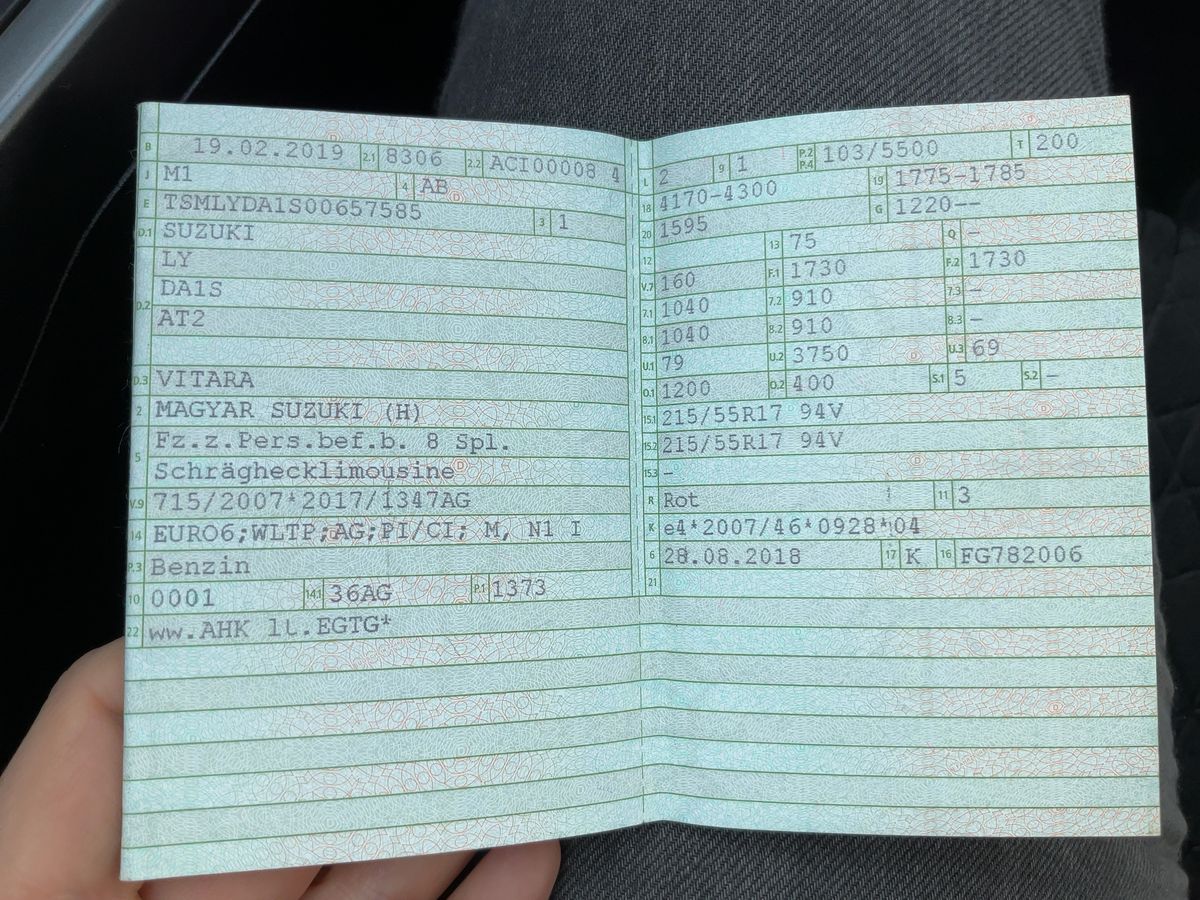 B 19.02.2019 2.1 8306 2.2 ACI00008 4
J M1 4 AB
E TSMLYDA1S00657585 3 1
D.1 SUZUKI
LY
D.2 DA1S
AT2
D.3 VITARA
2 MAGYAR SUZUKI (H)
5 Fz.z.Pers.bef.b. 8 Spl.
Schräghecklimousine
V.9 715/2007*2017/1347AG
14 EURO6;WLTP;AG;PI/CI; M, N1 I
P.3 Benzin
10 0001 14.1 36AG P.1 1373
22 ww.AHK lt.EGTG*
L 2 9 1 P.2 P.4 103/5500 T 200
18 4170-4300 19 1775-1785
20 1595 G 1220--
12 13 75 Q -
V.7 160 F.1 1730 F.2 1730
7.1 1040 7.2 910 7.3 -
8.1 1040 8.2 910 8.3 -
U.1 79 U.2 3750 U.3 69
O.1 1200 O.2 400 S.1 5 S.2 -
15.1 215/55R17 94V
15.2 215/55R17 94V
15.3 -
R Rot 11 3
K e4*2007/46*0928*04
6 28.08.2018 17 K 16 FG782006
21